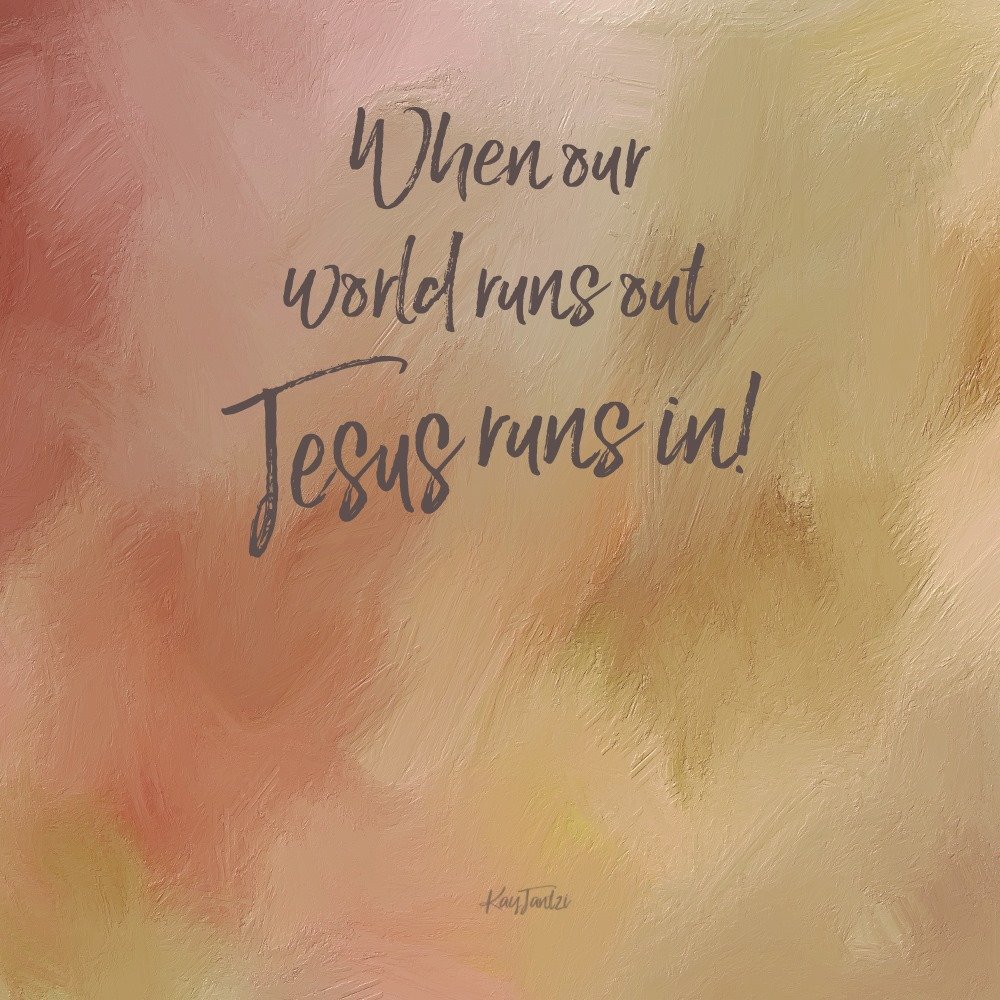 When our
world runs out
Jesus runs in!
Kay Jantzi